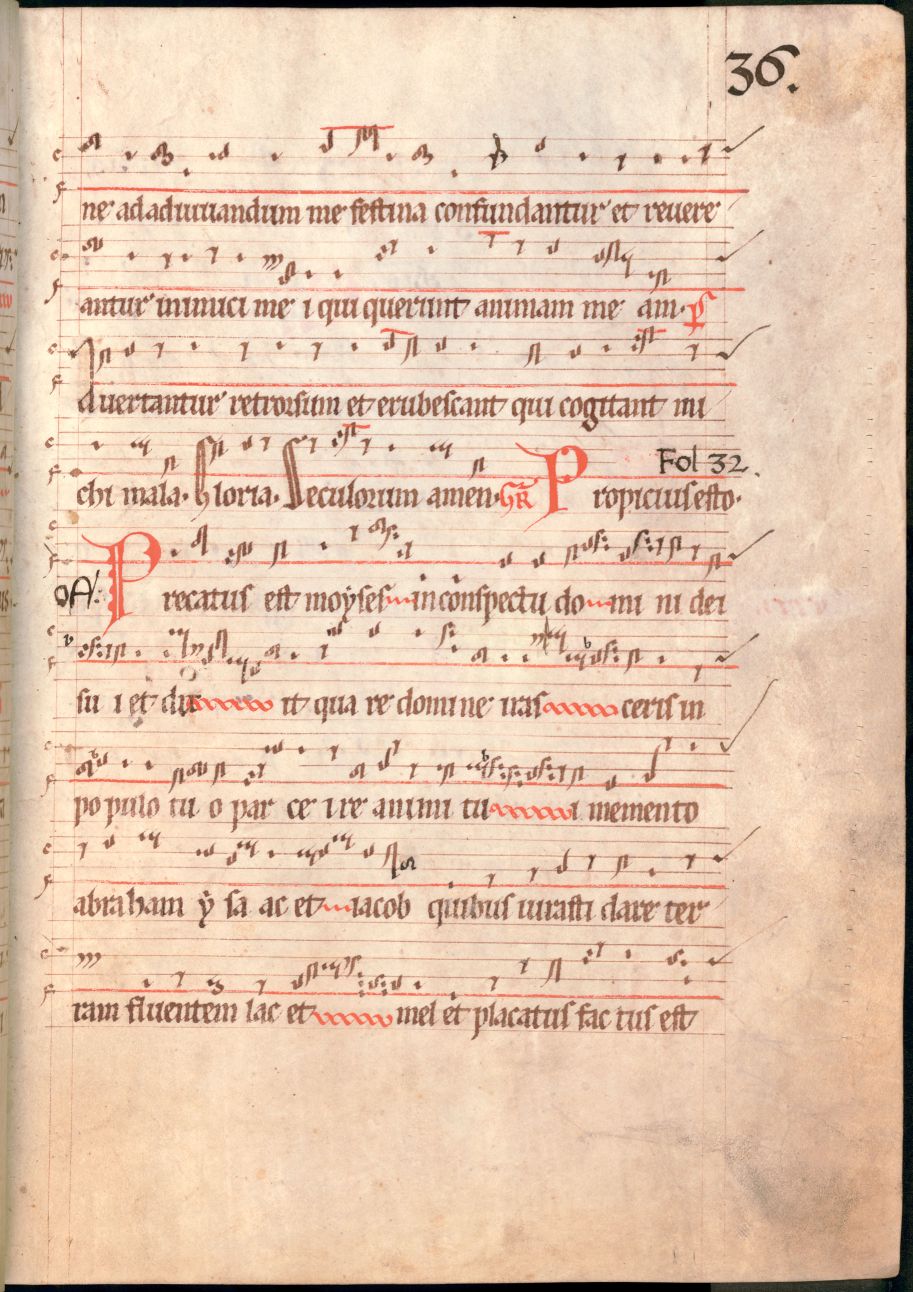 36.
ne ad adiuuandum me festina confundantur et reuere
antur inimici me i qui querunt animam me am. Ps
Auertantur retrorsum et erubescant qui cogitant mi
chi mala. Gloria. Seculorum amen. Gr Propicius esto.
Fol 32.
Of. Precatus est moyses in conspectu domini ni dei
su i et dix it qua re domine irasceris in
po pulo tu o par ce i re animi tu i memento
abraham y sa ac et iacob quibus iurasti dare ter
ram fluentem lac et mel et placatus fac tus est